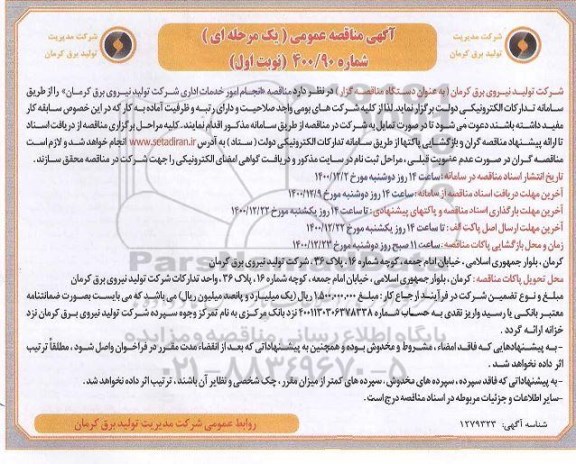 شرکت مدیریت
تولید برق کرمان
آگهی مناقصه عمومی ( یک مرحله ای )
شماره ۴۰۰/۹۰ (نوبت اول)
شرکت مدیریت
تولید برق کرمان
شرکت تولید نیروی برق کرمان (به عنوان دستگاه مناقصه گزار ) در نظر دارد مناقصه «انجام امور خدمات اداری شرکت تولید نیروی برق کرمان» را از طریق
سامانه تدارکات الکترونیکی دولت برگزار نماید. لذا از کلیه شرکت های بومی واجد صلاحیت و دارای رتبه و ظرفیت آماده به کار که در این خصوص سابقه کار
مفید داشته باشند دعوت می شود تا در صورت تمایل به شرکت در مناقصه از طریق سامانه مذکور اقدام نمایند. کلیه مراحل برگزاری مناقصه از دریافت اسناد
تا ارائه پیشنهاد مناقصه گران و بازگشایی پاکتها از طریق سامانه تدارکات الکترونیکی دولت ( ستاد ) به آدرس www.setadiran.ir انجام خواهد شد و لازم است
مناقصه گران در صورت عدم عضویت قبلی ، مراحل ثبت نام در سایت مذکور و دریافت گواهی امضای الکترونیکی را جهت شرکت در مناقصه محقق سازند.
تاریخ انتشار اسناد مناقصه در سامانه: ساعت ۱۴ روز دوشنبه مورخ ۱۴۰۰/۱۲/۲
آخرین مهلت دریافت اسناد مناقصه از سامانه: ساعت ۱۴ روز دوشنبه مورخ ۱۴۰۰/۱۲/۹
آخرین مهلت بارگذاری اسناد مناقصه و پاکتهای پیشنهادی : تا ساعت ۱۴ روز یکشنبه مورخ ۱۴۰۰/۱۲/۲۲
آخرین مهلت ارسال اصل پاکت الف: تا ساعت ۱۴ روز یکشنبه مورخ ۱۴۰۰/۱۲/۲۲
زمان و محل بازگشایی پاکات مناقصه: ساعت ۱۱ صبح روز دوشنبه مورخ ۱۴۰۰/۱۲/۲۳
کرمان ، بلوار جمهوری اسلامی ، خیابان امام جمعه ، کوچه شماره ۱۶ ، پلاک ۳۶ ، شرکت تولید نیروی برق کرمان
محل تحویل پاکات مناقصه: کرمان ، بلوار جمهوری اسلامی ، خیابان امام جمعه ، کوچه شماره ۱۶ ، پلاک ۳۶ ، واحد تدارکات شرکت تولید نیروی برق کرمان
مبلغ و نوع تضمین شرکت در فرآیند ارجاع کار : مبلغ ۱،۵۰۰،۰۰۰،۰۰۰ ریال (یک میلیارد و پانصد میلیون ریال) می باشد که می بایست به بصورت ضمانتنامه
معتبر بانکی یا رسید واریز نقدی به حساب شماره ۴۰۰۱۱۳۰۳۰۶۳۷۸۳۳۸ نزد بانک مرکزی به نام تمرکز وجوه سپرده شرکت تولید نیروی برق کرمان نزد
خزانه ارائه گردد .
- به پیشنهادهایی که فاقد امضاء ، مشروط و مخدوش بوده و همچنین به پیشنهاداتی که بعد از انقضاء مدت مقرر در فراخوان واصل شود ، مطلقاً ترتیب
اثر داده نخواهد شد .
- به پیشنهاداتی که فاقد سپرده ، سپرده های مخدوش ، سپرده های کمتر از میزان مقرر ، چک شخصی و نظایر آن باشند ، ترتیب اثر داده نخواهد شد.
-سایر اطلاعات و جزئیات مربوطه در اسناد مناقصه درج است .
شناسه آگهی: ۱۲۷۹۳۲۳
روابط عمومی شرکت مدیریت تولید برق کرمان
پایگاه اطلاع رسانی مناقصه و مزایده
۰۲۱-۸۸۳۴۹۶۷۰-۵